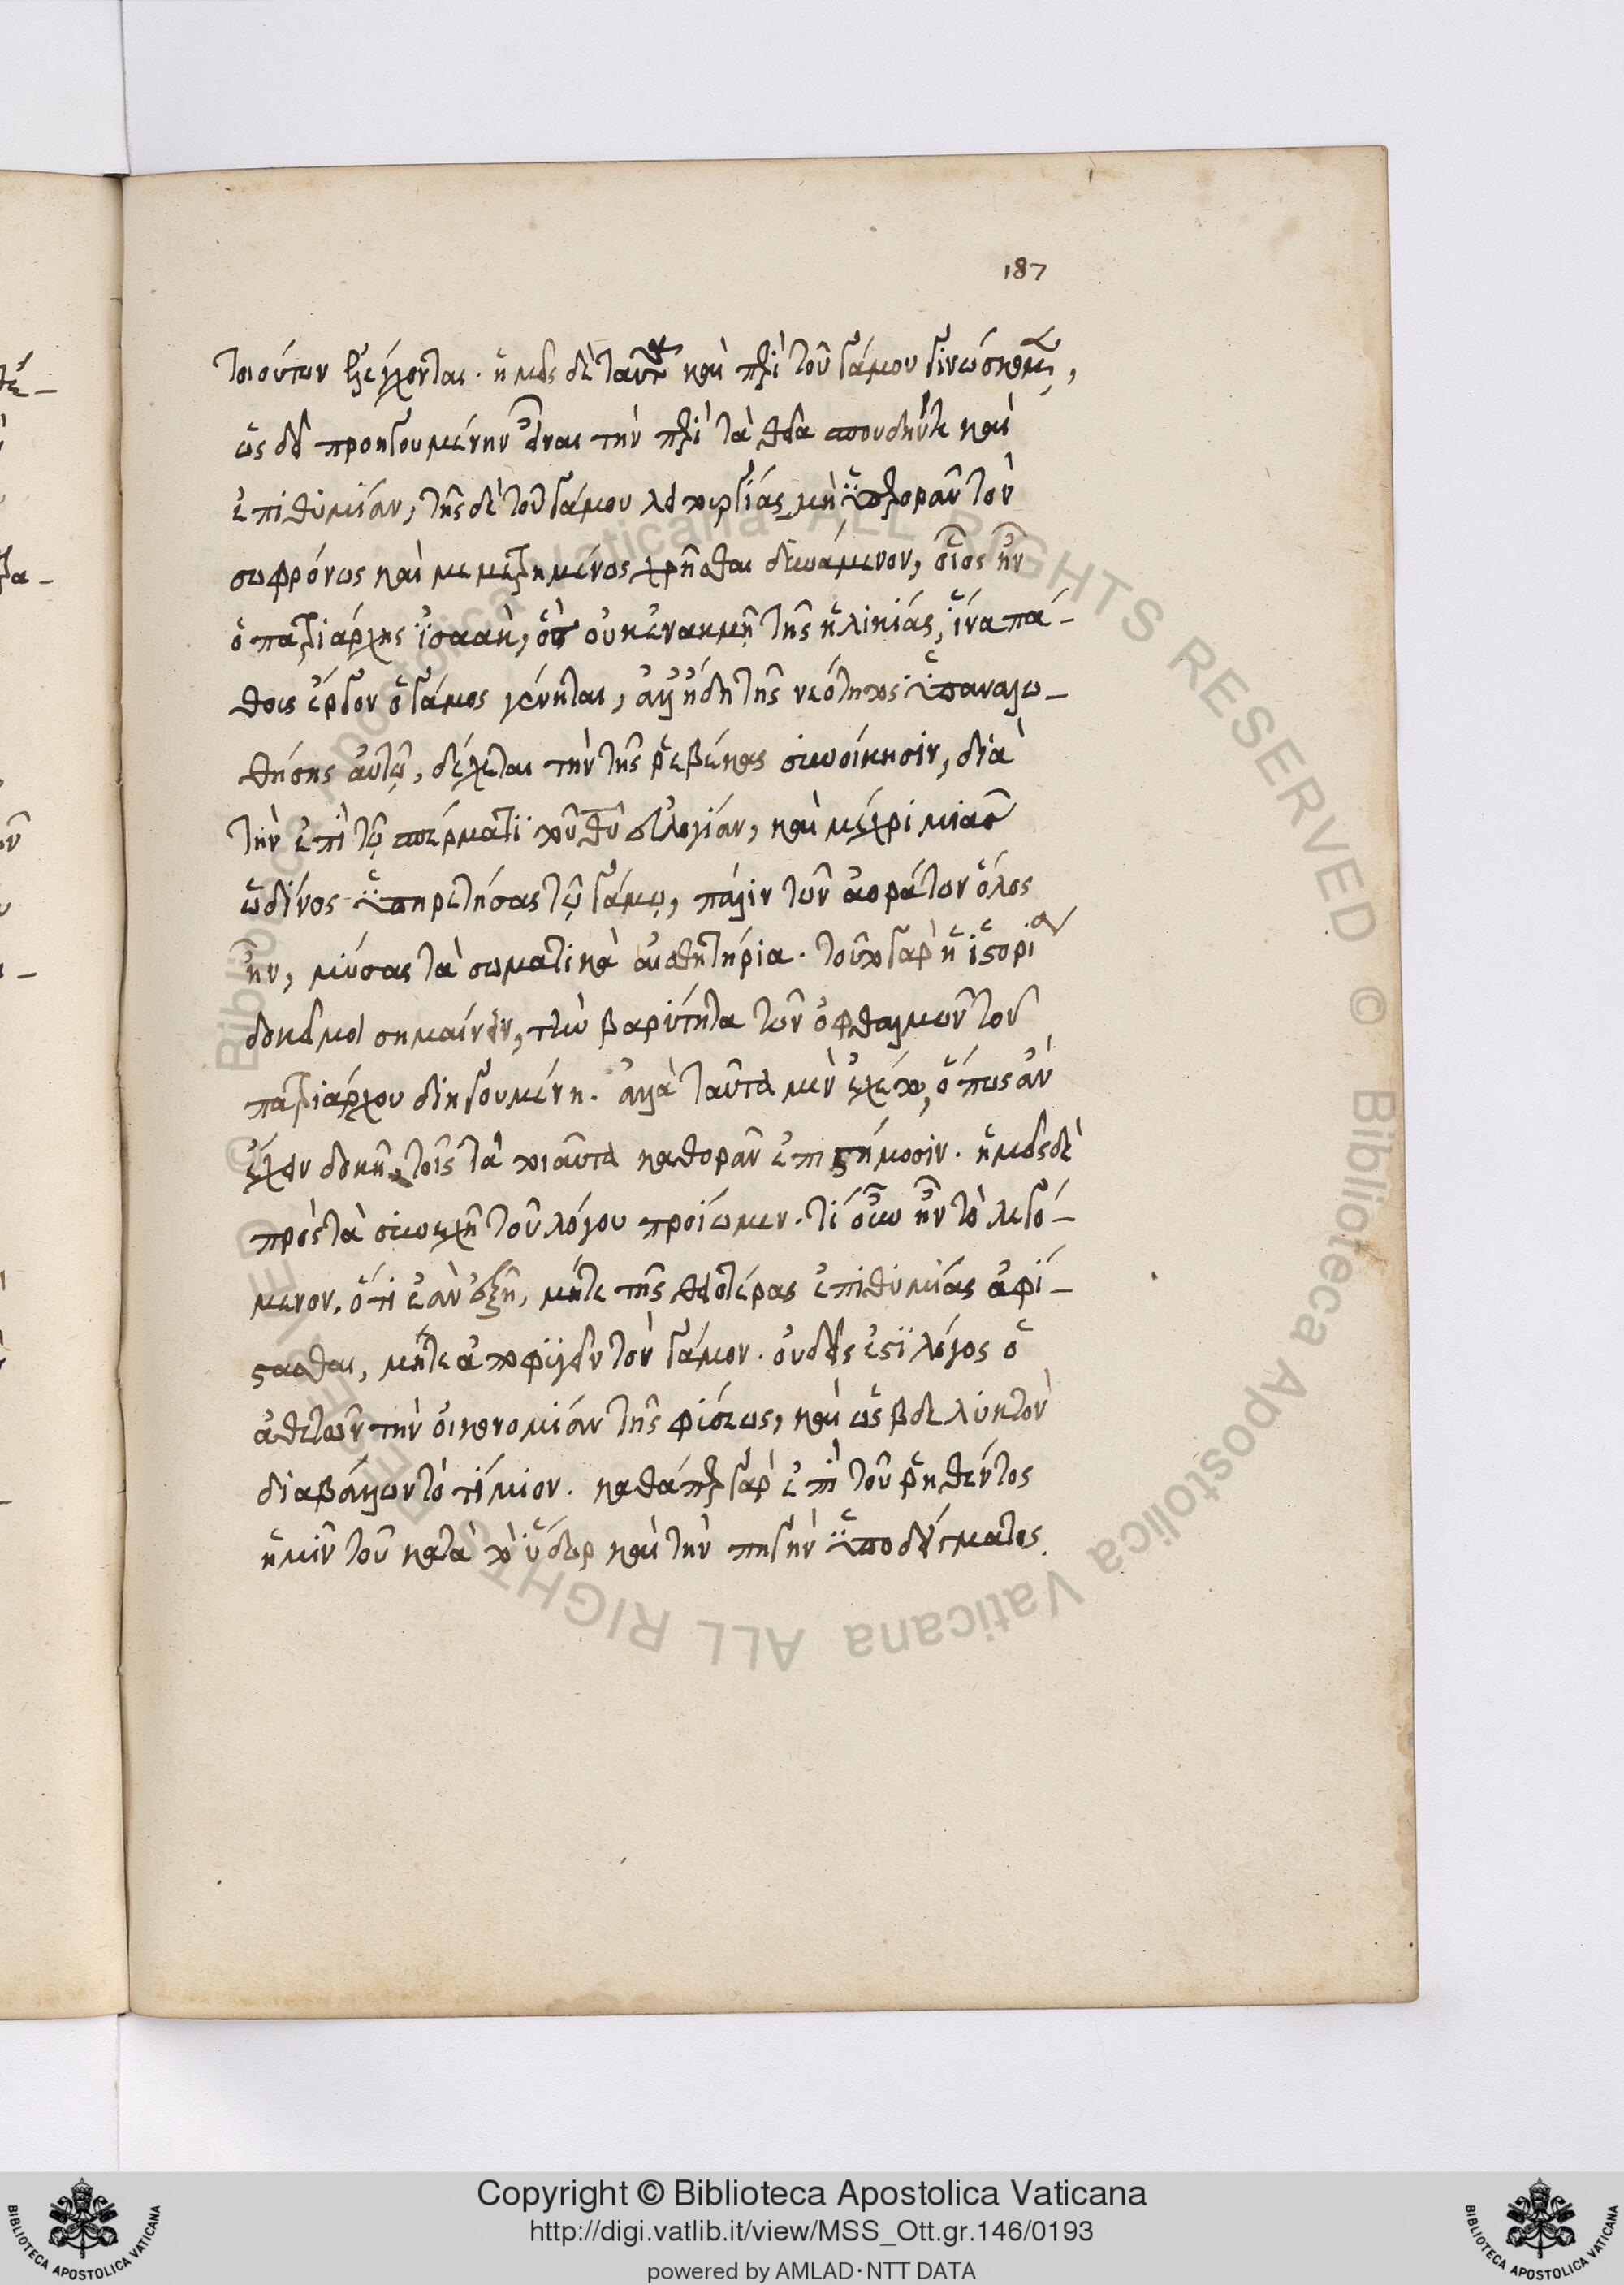 187
τοιούτων ἐξελέγχοντας. ἡμεῖς δὲ ταῦτα καὶ περὶ τοῦ γάμου γινώσκομεν,
ὡς δεῖ προηγουμένην εἶναι τὴν περὶ τὰ θεῖα σπουδήν τε καὶ
ἐπιθυμίαν, τῆς δὲ τοῦ γάμου λειτουργίας μὴ ὑπερορᾶν τὸν
σωφρόνως καὶ μεμετρημένως χρῆσθαι δυνάμενον, οἷος ἦν
ὁ πατριάρχης ἰσαὰκ, ὃς οὐκ ἐν ἀκμῇ τῆς ἡλικίας, ἵνα πά-
θους ἔργον ὁ γάμος γένηται, ἀλλ' ἤδη τῆς νεότητος ὑπαναλω-
θείσης αὐτῷ, δέχεται τὴν τῆς ῥεβέκκας συνοίκησιν, διὰ
τὴν ἐπὶ τῷ σπέρματι τοῦ θυ εὐλογίαν, καὶ μέχρι μιᾶς
ὠδῖνος ὑπηρετήσας τῷ γάμῳ, πάλιν τῶν ἀοράτων ὅλος
ἦν, μύσας τὰ σωματικὰ αἰσθητήρια. τοῦτο γὰρ ἡ ἱστορία
δοκεῖ μοι σημαίνειν, τὴν βαρύτητα τῶν ὀφθαλμῶν τοῦ
πατριάρχου διηγουμένη. ἀλλὰ ταῦτα μὲν ἐχέτω, ὅπως ἂν
ἔχειν δοκῇ, τοῖς τὰ τοιαῦτα καθορᾶν ἐπιστήμοσιν. ἡμεῖς δὲ
πρὸς τὰ συνεχῆ τοῦ λόγου προΐωμεν. τί οὖν ἦν τὸ λεγό-
μενον. ὅτι ἐὰν ἐξῇ, μήτε τῆς θειοτέρας ἐπιθυμίας ἀφί-
στασθαι, μήτε ἀποφεύγειν τὸν γάμον. οὐδεὶς ἐστὶ λόγος ὁ
ἀθετῶν τὴν οἰκονομίαν τῆς φύσεως, καὶ ὡς βδελυκτὸν
διαβάλλων τὸ τίμιον. καθάπερ γὰρ ἐπὶ τοῦ ῥηθέντος
ἡμῖν τοῦ κατὰ τὸ ὕδωρ καὶ τὴν πηγὴν ὑποδείγματος
© Biblioteca Apostolica Vaticana ALL RIGHTS RESERVED © Biblioteca Apostolica Vaticana ALL RIGHTS RESERVED
Copyright © Biblioteca Apostolica Vaticana
http://digi.vatlib.it/view/MSS_Ott.gr.146/0193
powered by AMLAD·NTT DATA
BIBLIOTECA APOSTOLICA VATICANA
BIBLIOTECA APOSTOLICA VATICANA